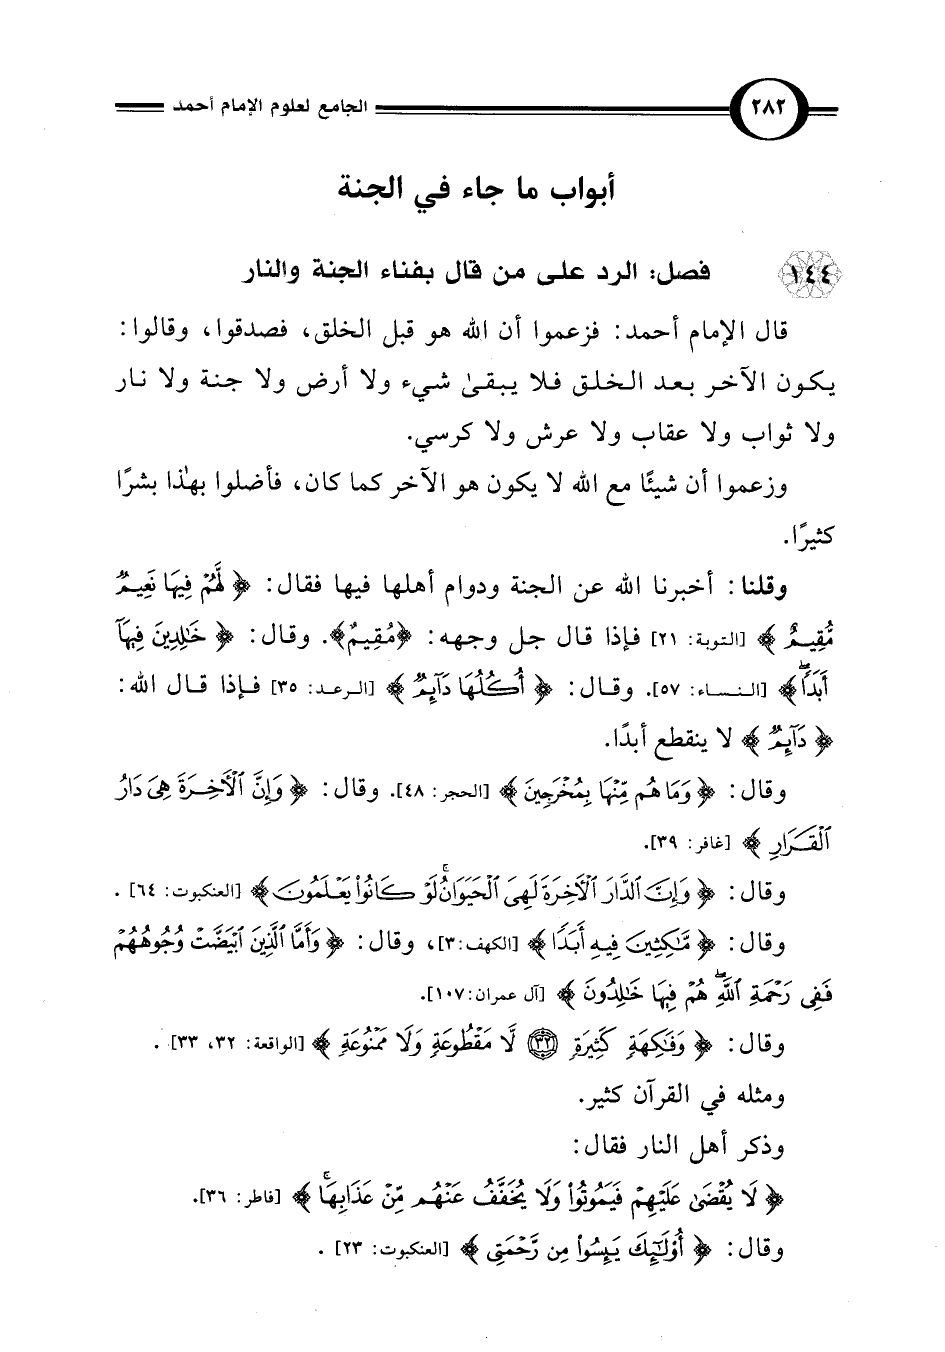 ٢٨٢ الجامع لعلوم الإمام أحمد
أبواب ما جاء في الجنة
١٤٤ فصل: الرد على من قال بفناء الجنة والنار
قال الإمام أحمد: فزعموا أن الله هو قبل الخلق، فصدقوا، وقالوا:
يكون الآخر بعد الخلق فلا يبقىٰ شيء ولا أرض ولا جنة ولا نار
ولا ثواب ولا عقاب ولا عرش ولا كرسي.
وزعموا أن شيئًا مع الله لا يكون هو الآخر كما كان، فأضلوا بهٰذا بشرًا
كثيرًا.
وقلنا: أخبرنا الله عن الجنة ودوام أهلها فيها فقال: ﴿لَّهُمْ فِيهَا نَعِيمٌ
مُّقِيمٌ﴾ [التوبة: ٢١] فإذا قال جل وجهه: ﴿مُقِيمٌ﴾. وقال: ﴿خَٰلِدِينَ فِيهَآ
أَبَدًاۖ﴾ [النساء: ٥٧]. وقال: ﴿أُكُلُهَا دَآئِمٌ﴾ [الرعد: ٣٥] فإذا قال الله:
﴿دَآئِمٌ﴾ لا ينقطع أبدًا.
وقال: ﴿وَمَا هُم مِّنْهَا بِمُخْرَجِينَ﴾ [الحجر: ٤٨]. وقال: ﴿وَإِنَّ ٱلْأَخِرَةَ هِىَ دَارُ
ٱلْقَرَارِ﴾ [غافر: ٣٩].
وقال: ﴿وَإِنَّ ٱلدَّارَ ٱلْأَخِرَةَ لَهِىَ ٱلْحَيَوَانُۚ لَوْ كَانُوا۟ يَعْلَمُونَ﴾ [العنكبوت: ٦٤] .
وقال: ﴿مَّٰكِثِينَ فِيهِ أَبَدًا﴾ [الكهف:٣]، وقال: ﴿وَأَمَّا ٱلَّذِينَ ٱبْيَضَّتْ وُجُوهُهُمْ
فَفِى رَحْمَةِ ٱللَّهِۖ هُمْ فِيهَا خَٰلِدُونَ﴾ [آل عمران:١٠٧].
وقال: ﴿وَفَٰكِهَةٍ كَثِيرَةٍ ٣٢ لَّا مَقْطُوعَةٍ وَلَا مَمْنُوعَةٍ﴾ [الواقعة: ٣٢، ٣٣] .
ومثله في القرآن كثير.
وذكر أهل النار فقال:
﴿لَا يُقْضَىٰ عَلَيْهِمْ فَيَمُوتُوا۟ وَلَا يُخَفَّفُ عَنْهُم مِّنْ عَذَابِهَاۚ﴾ [فاطر: ٣٦].
وقال: ﴿أُو۟لَٰٓئِكَ يَئِسُوا۟ مِن رَّحْمَتِى﴾ [العنكبوت: ٢٣] .